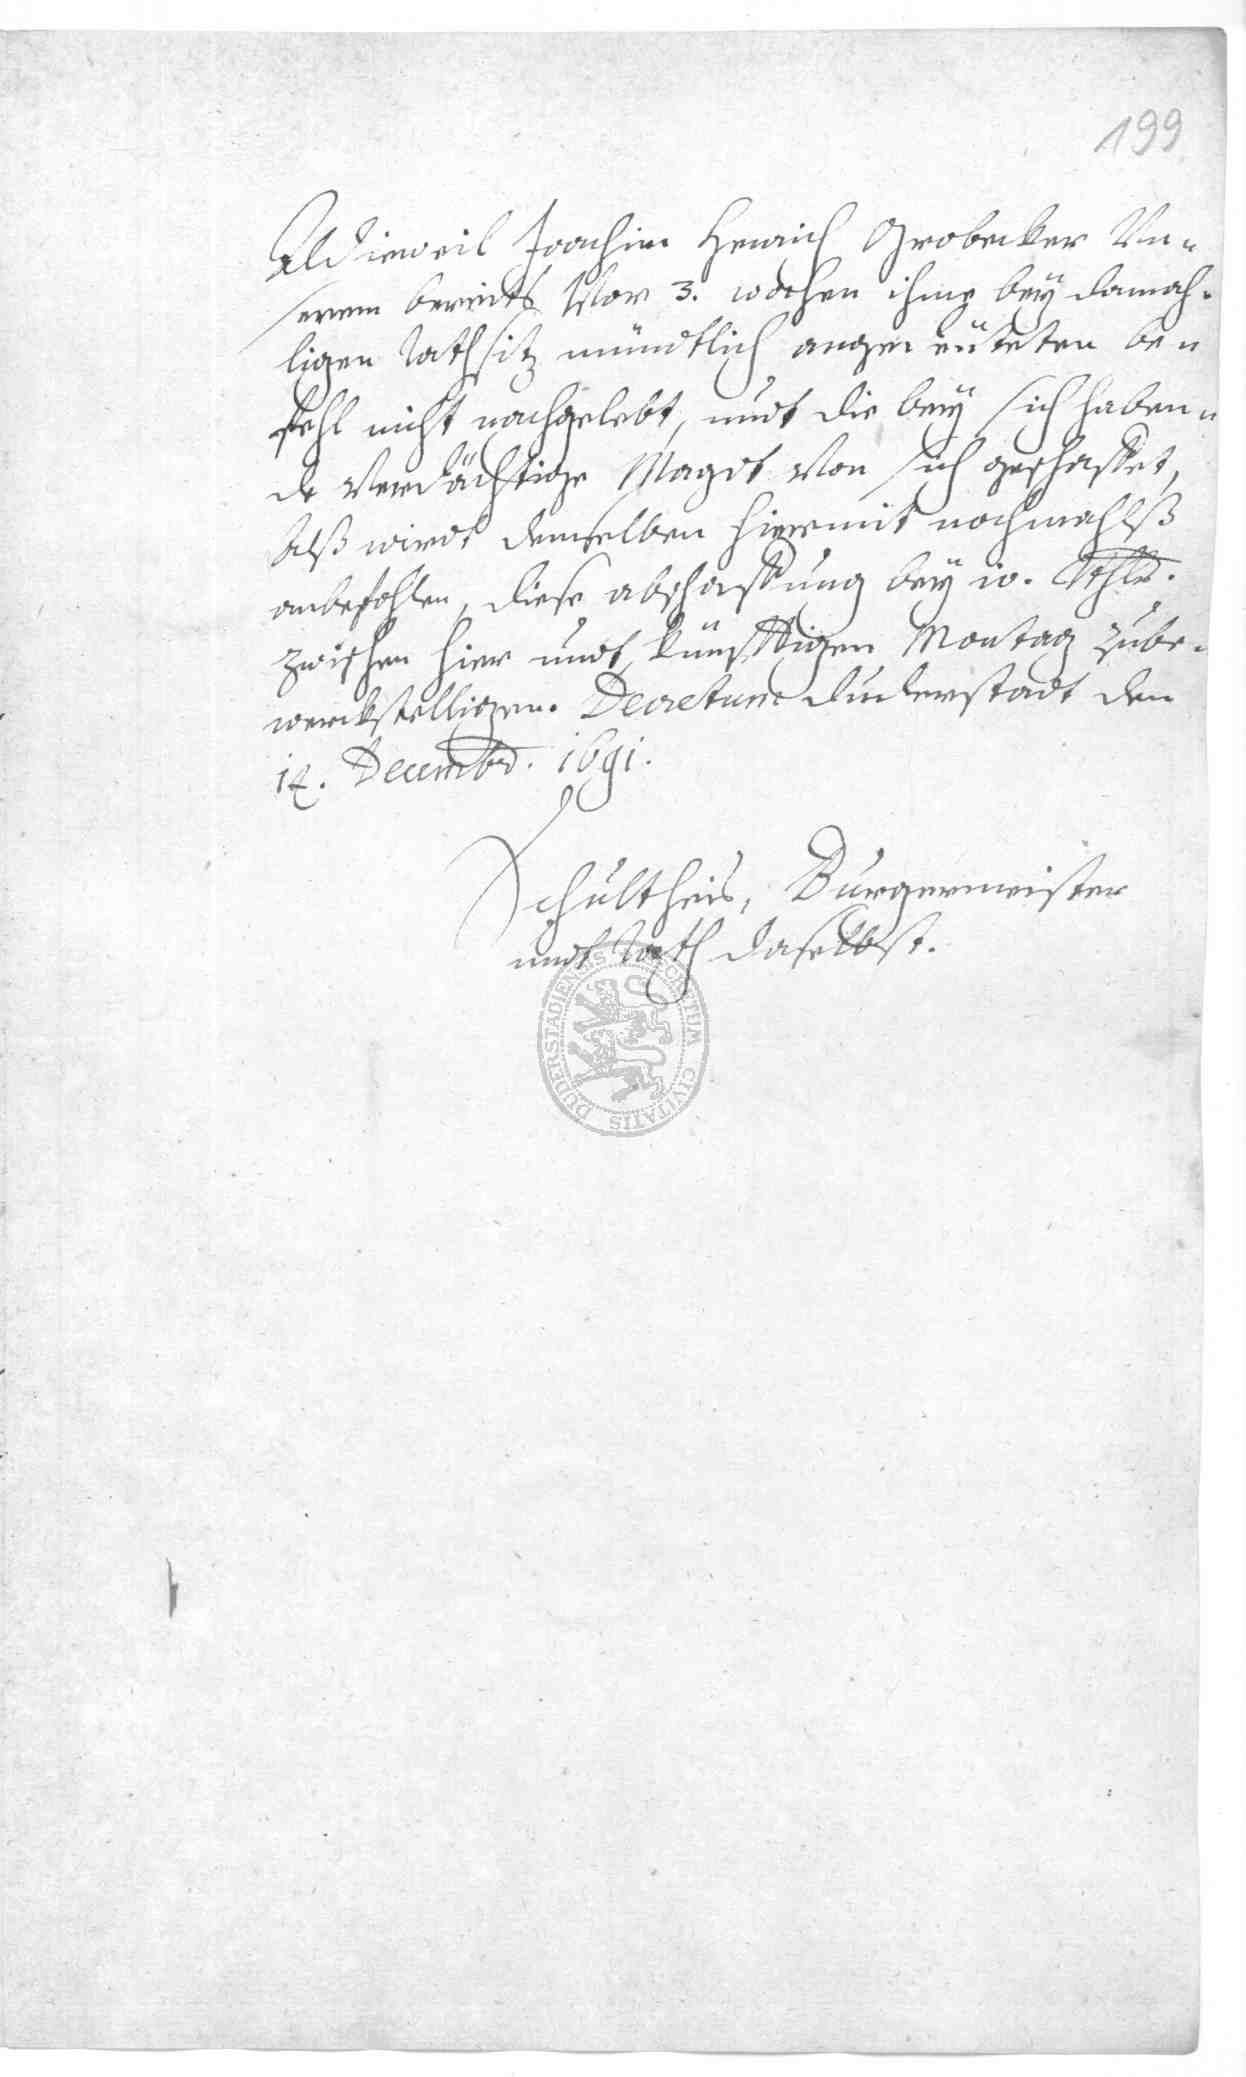 199
Alldieweil Joachim Henrich Grobecker Un=
serem bereits Vor 3. wochen ihme bey damah=
ligen Rathsitz mündtlich angedeüteten be=
fehl nicht nachgelebt, undt die bey sich haben=
de Verdächtige Magdt von sich geschaffet,
Alß wirdt demselben hiermit nochmahlß
anbefohlen, diese abschaffung bey 10. Rthlr.
zwischen hier undt künfftigen Montag zube=
werckstelligen. Decretum Duderstadt den
14. Decembr. 1691.
Schultheis, Burgermeister
undt Rath daselbst.
DUDERSTADIENSIS
CIVITATIS